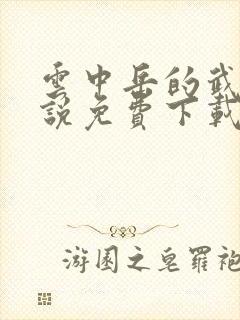 雲中岳的武
說免費下載
游園之皂羅袍